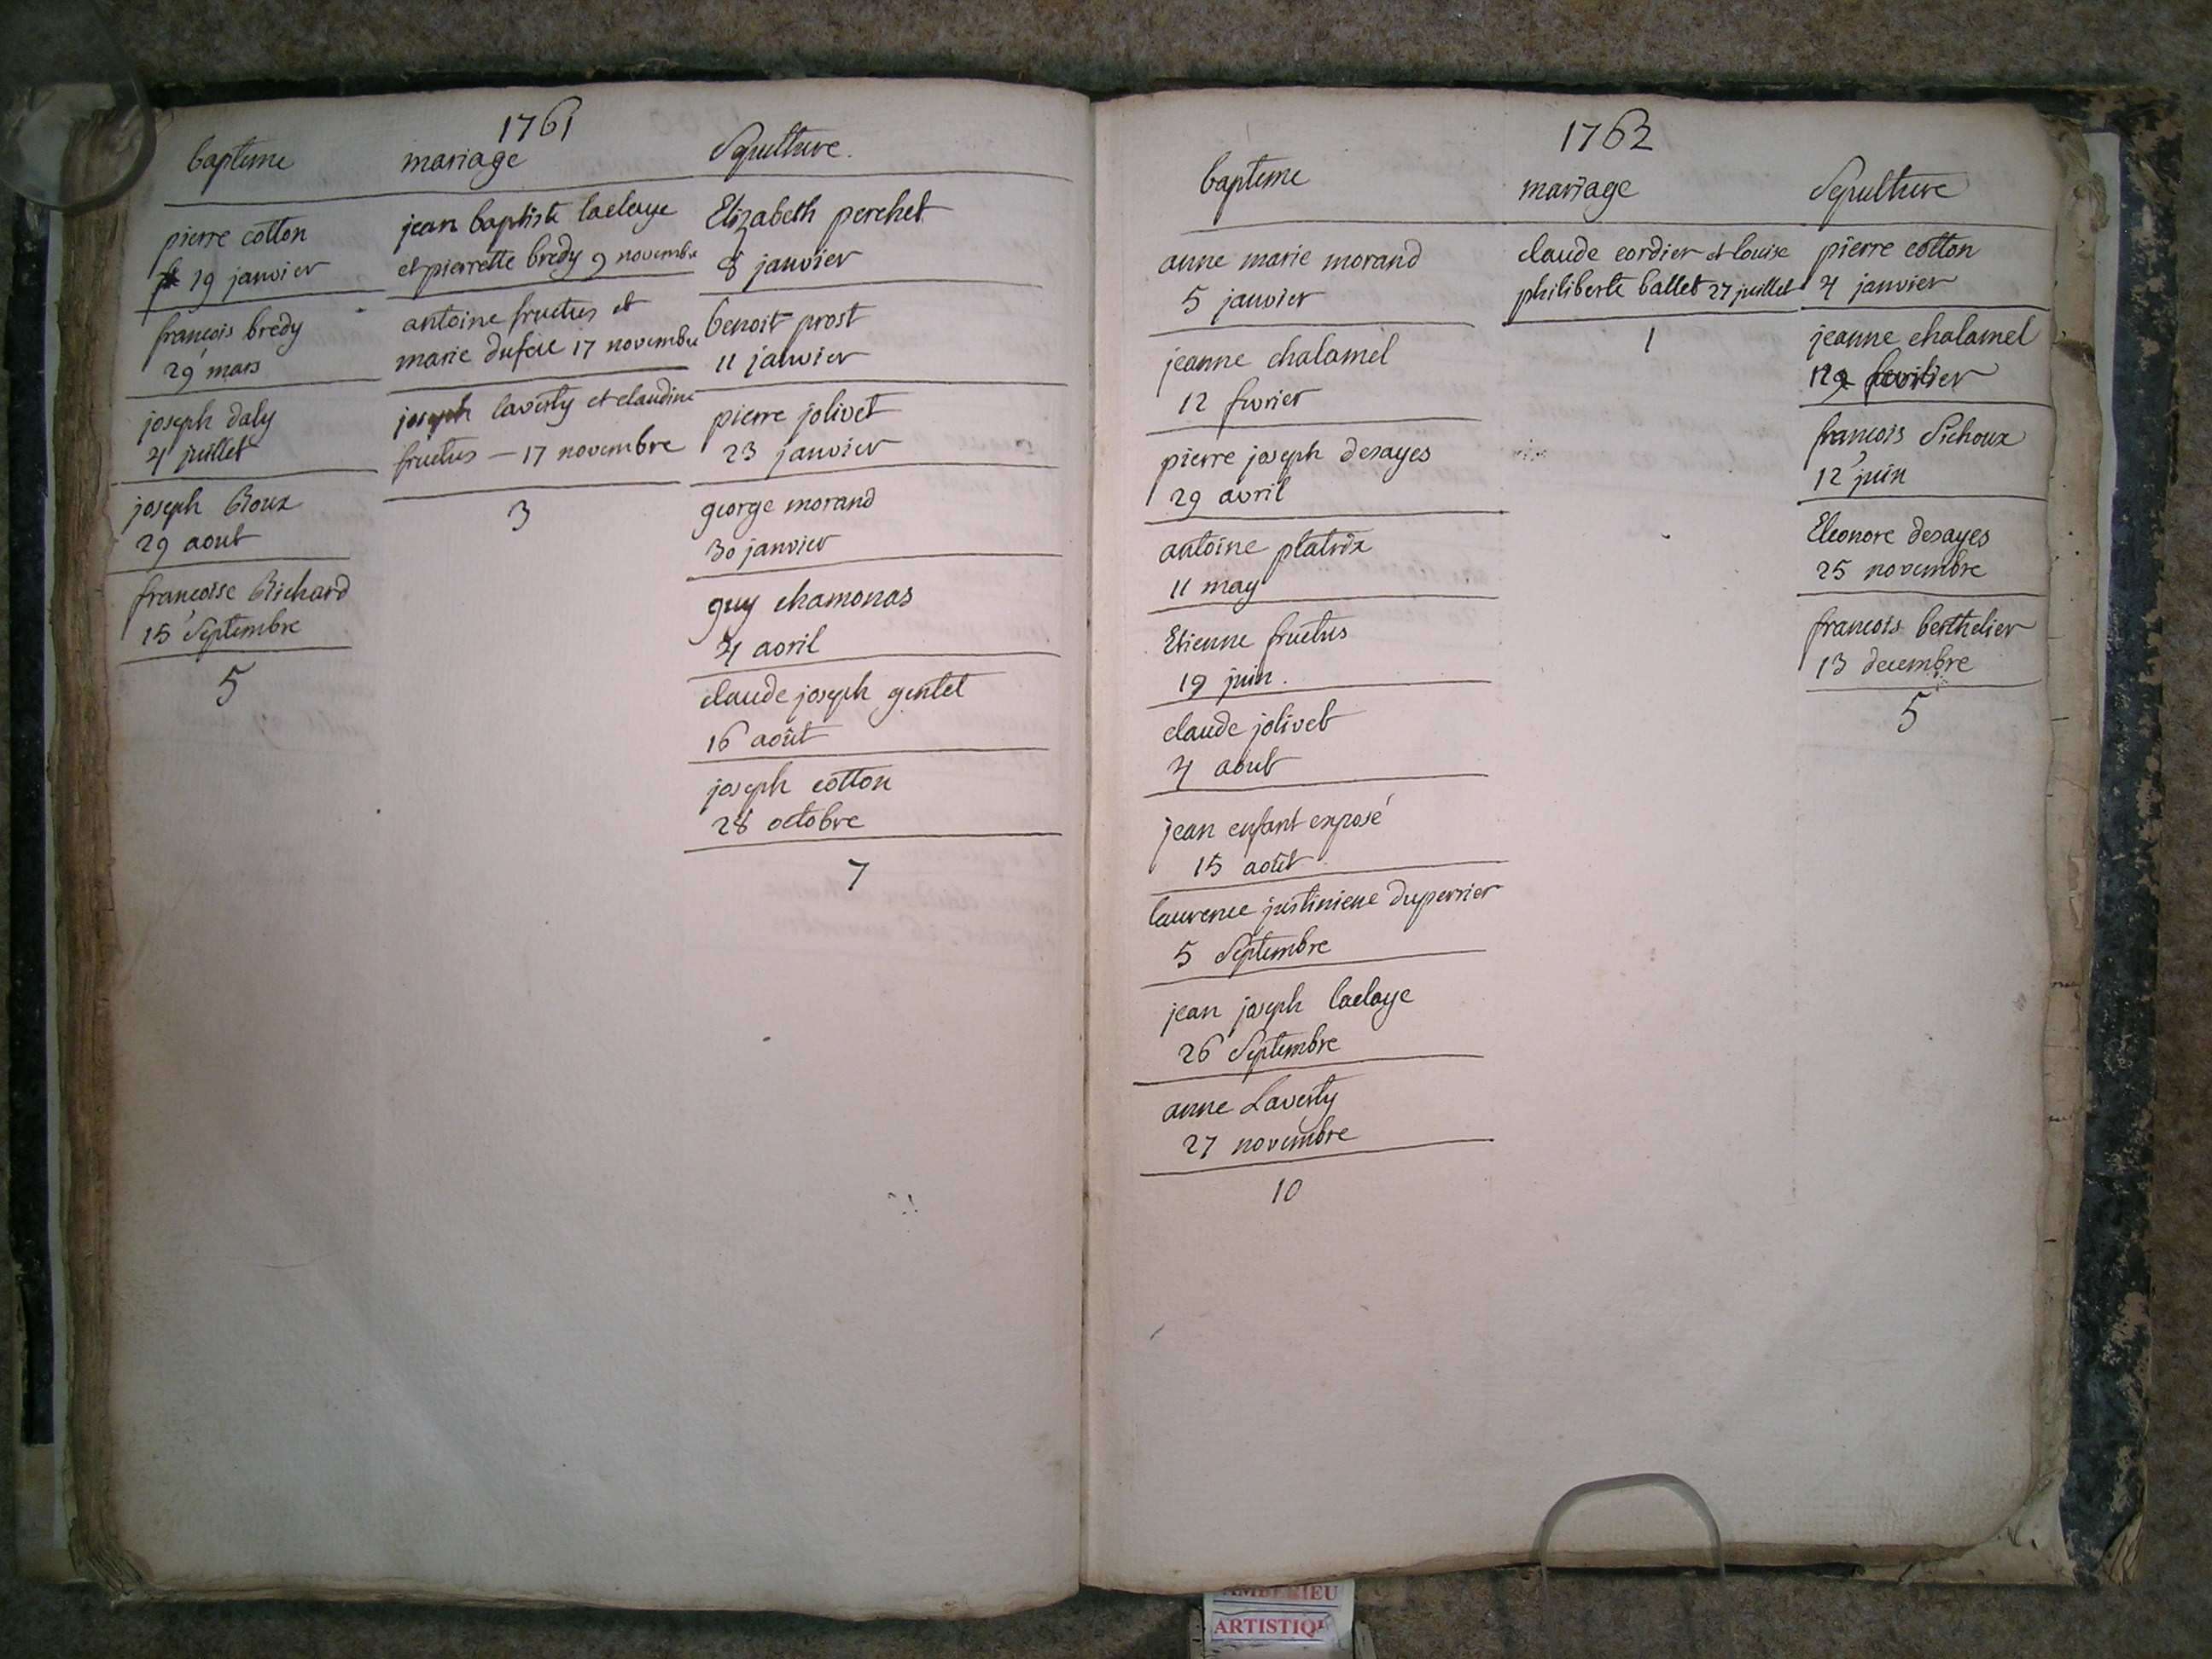 1761
bapteme
pierre cotton
19 janvier
francois bredy
29 mars
joseph daly
4 juillet
joseph Roux
29 aout
francoise Richard
15 Septembre
5
mariage
jean baptiste laclaye
et pierrette bredy 9 novembre
antoine fructus et
marie 17 novembre
joseph laverty et claudine
fructus — 17 novembre
3
Sepulture.
Elizabeth perchet
8 janvier
benoit prost
11 janvier
pierre jolivet
23 janvier
george morand
30 janvier
guy chamonas
4 avril
claude joseph gentet
16 août
joseph cotton
28 octobre
7
1762
bapteme
anne marie morand
5 janvier
jeanne chalamel
12 fevrier
pierre joseph desayes
29 avril
antoine platrix
11 may
Etienne fructus
19 juin.
claude jolivet
4 aout
jean enfant exposé
15 août
laurence justiniene duperrier
5 Septembre
jean joseph laclaye
26 Septembre
anne Laverty
27 novembre
10
mariage
claude cordier et louise
philiberte ballet 27 juillet
1
Sepulture
pierre cotton
4 janvier
jeanne chalamel
francois Sichoux
12 juin
Eleonore desayes
25 novembre
francois berthelier
13 decembre
5
ARTISTIQ